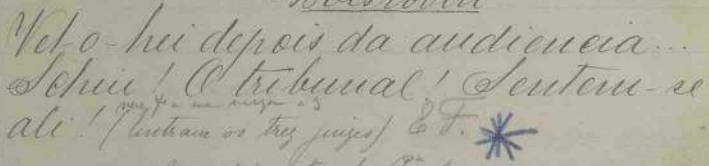 Vel-o-hei depois da audiencia...
Schiu! O tribunal! Sentem-se
ali! (Entram os trez juizes) E F.